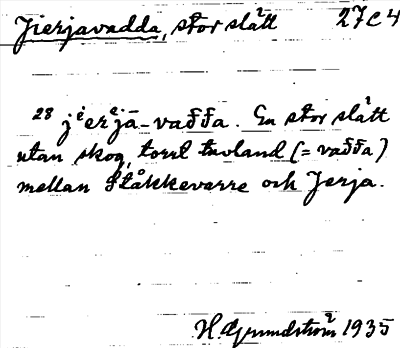 Jierjavadda, stor slätt 27C4
28 jierjā-vaδδa. En stor slätt
utan skog, torrt
mellan Ståkkevarre och Jerja.
H. Grundström 1935